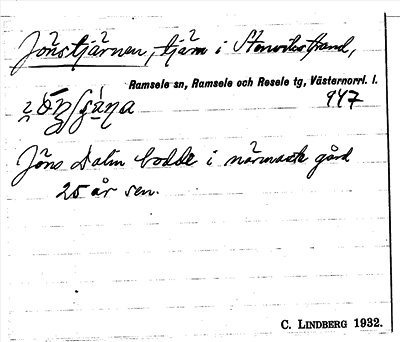 Jönstjärnen, tjärn i Stenviksstrand,
Ramsele sn, Ramsele och Resele tg, Västernorrl. l.
947
Jöns Dalin bodde i närmaste gård
25 år sen.
C. LINDBERG 1932.